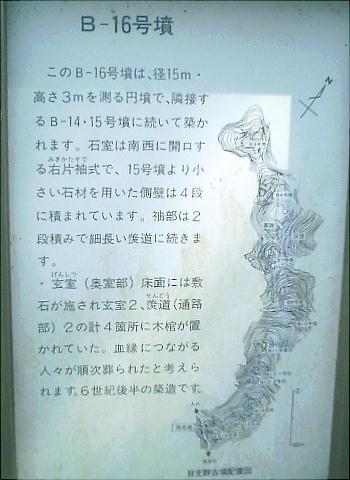 B-16号墳
このB-16号墳は、径15m・
高さ3mを測る円墳で、隣接す
るB-14・15号墳に続いて築か
れます。石室は南西に開口す
みぎかたそで
る右片袖式で、15号墳より小
さい石材を用いた側壁は4段
に積まれています。袖部は2
段積みで細長い羨道に続きま
す。
げんしつ
・玄室(奥室部)床面には敷
せんどう
石が施され玄室2、羨道(通路
部)2の計4箇所に木棺が置
かれていた。血縁につながる
人々が順次葬られたと考えら
れます。6世紀後半の築造です
N